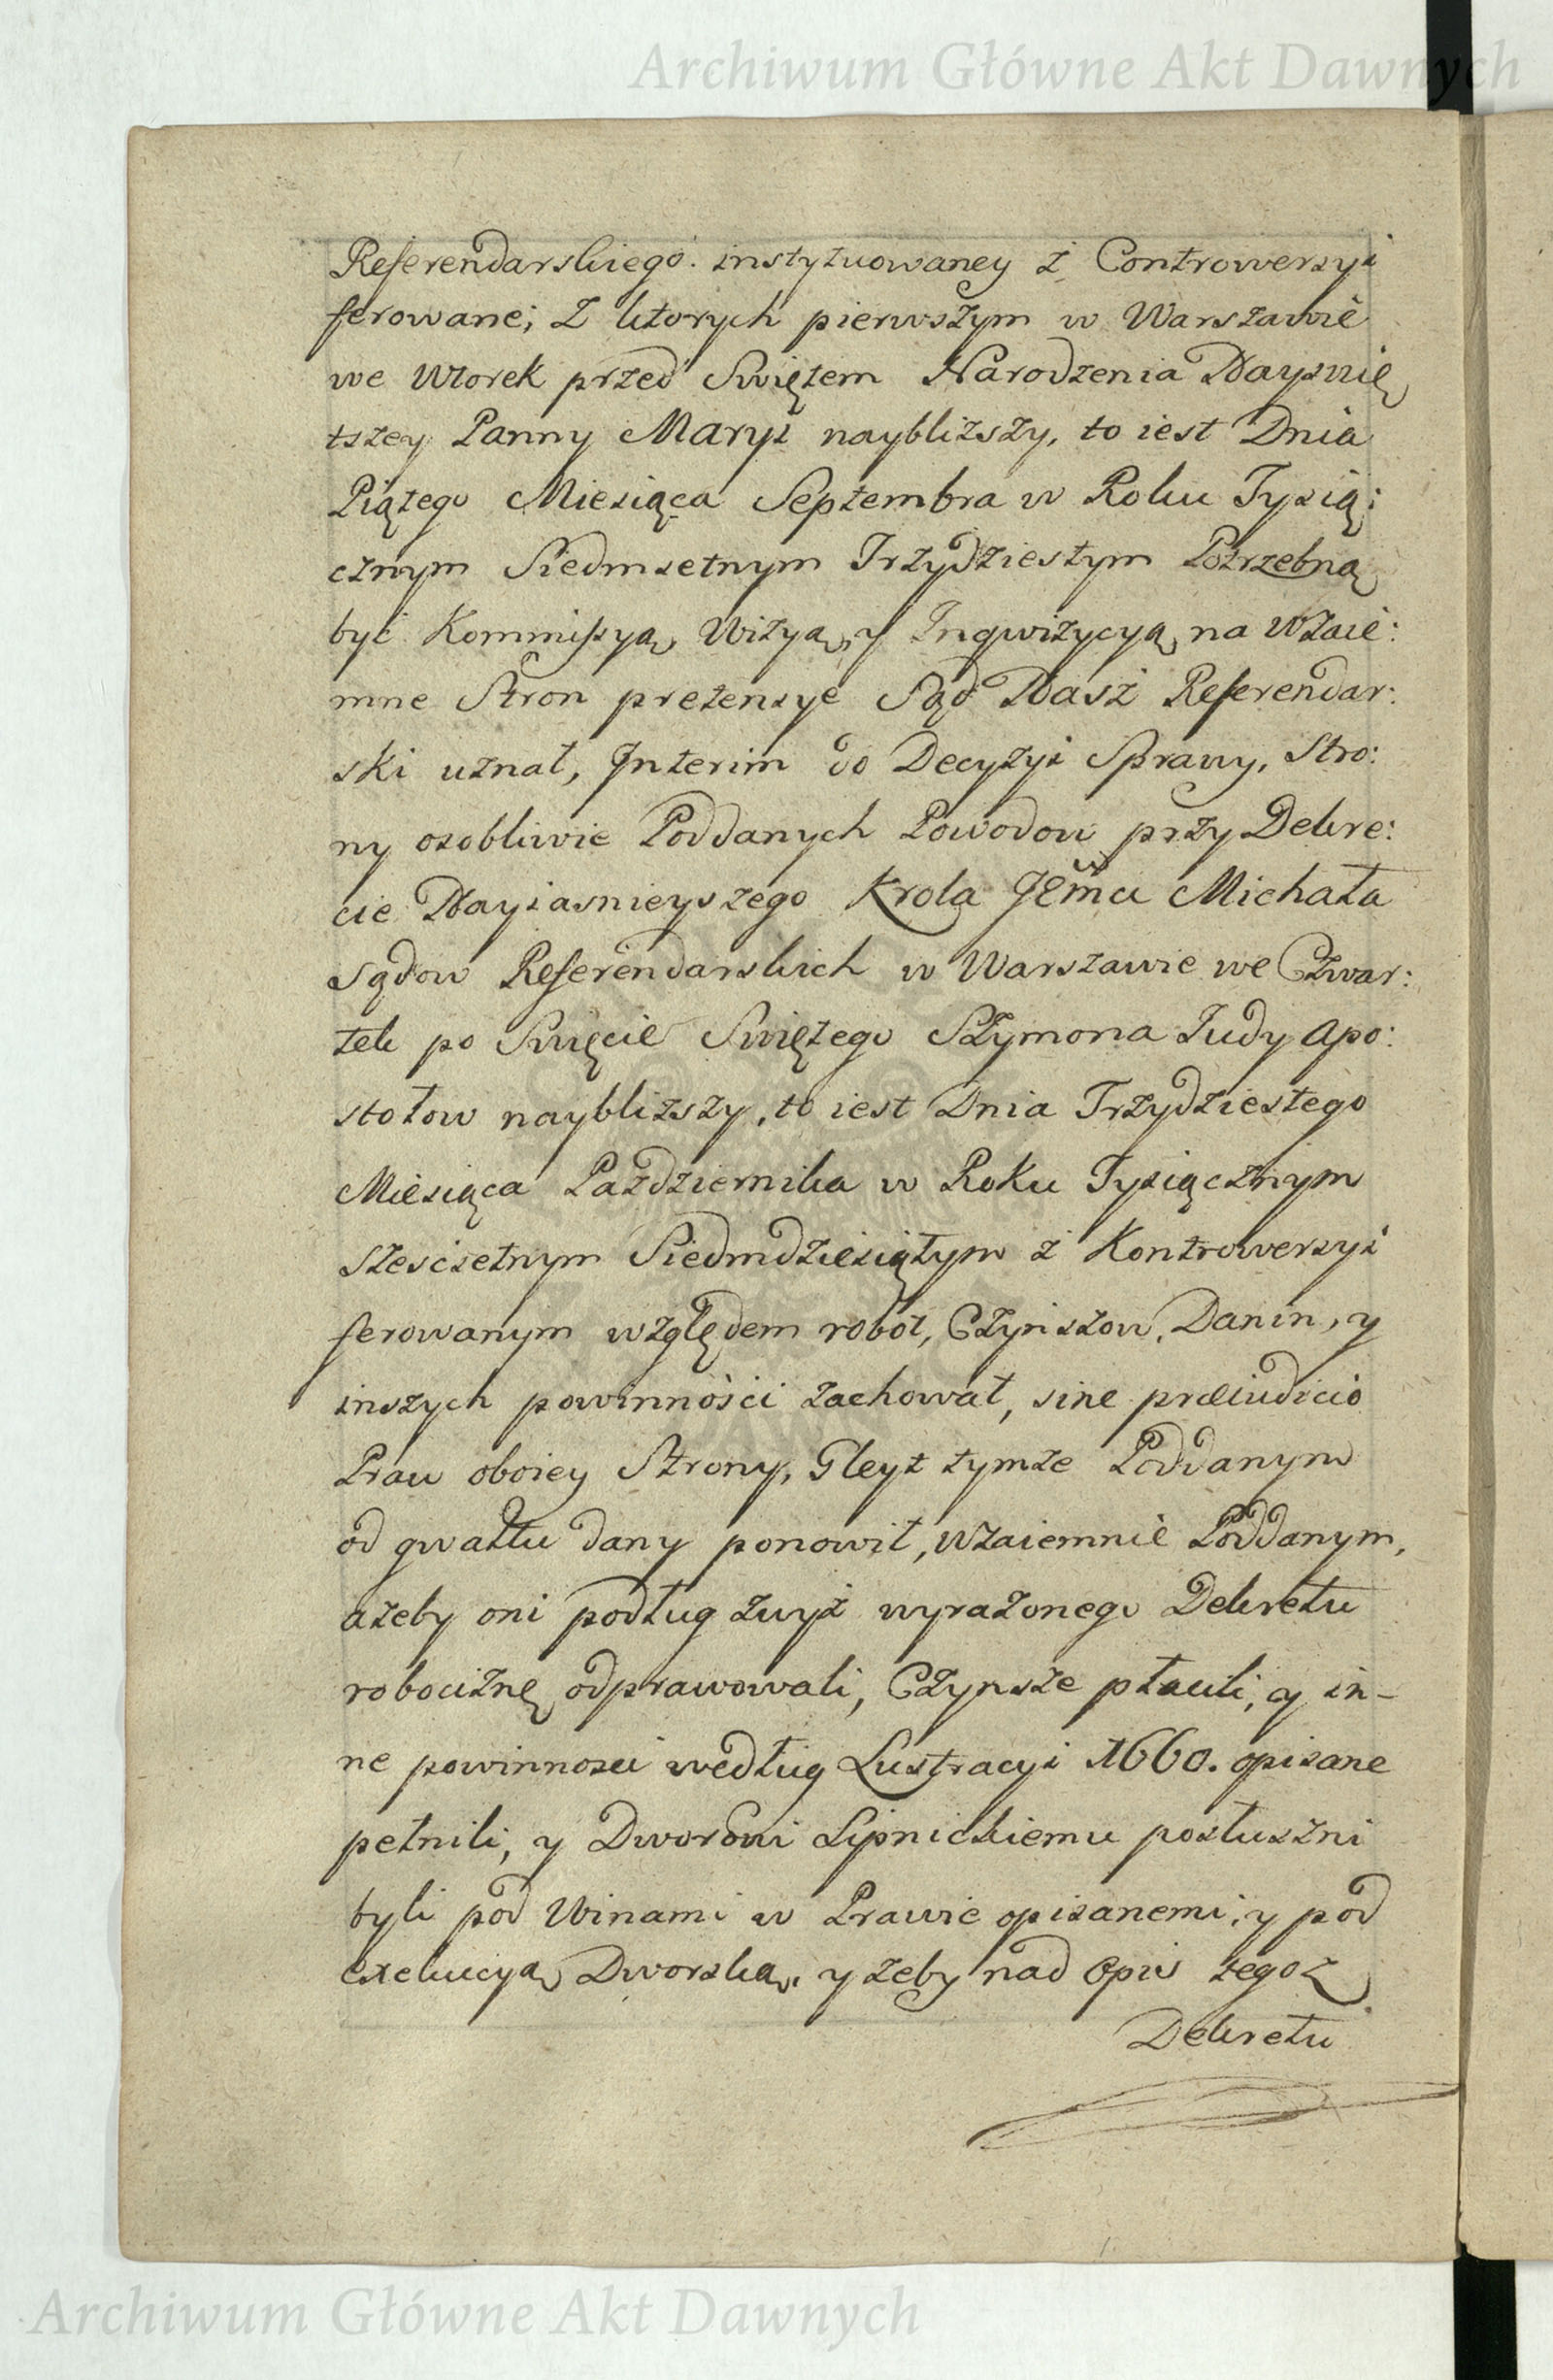 Archiwum Główne Akt Dawnych
Referendarskiego instytuowaney z Controwersyi
ferowane; Z ktorych pierwszym w Warszawie
we Wtorek przed Swiętem Narodzenia Nayswię
tszey Panny Maryi naybliższy, to iest Dnia
Piątego Miesiąca Septembra w Roku Tysią:
cznym Siedmsetnym Trzydziestym Potrzebną
być Kommissyą, Wizyą, y Inqwizycyą na Wzaie:
mne Stron pretensye Sąd Nasz Referendar:
ski uznał, Interim do Decyzyi Sprawy, Stro:
ny osobliwie Poddanych Powodow przy Dekre:
cie Nayiasnieyszego Krola Jemci Michała
Sądow Referendarskich w Warszawie we Czwar:
tek po Swięcie Swiętego Szymona Judy Apo:
stołow naybliższy, to iest Dnia Trzydziestego
Miesiąca Października w Roku Tysiącznym
sześcsetnym Siedmdziesiątym z Kontrowersyi
ferowanym względem robot, Czynszow, Danin, y
inszych powinności zachował, sine præiudicio
Praw oboiey Strony, Gleyt tymże Poddanym
od gwałtu dany ponowił, wzaiemnie Poddanym,
ażeby oni podług zwyż wyrażonego Dekretu
robociznę odprawowali, Czynsze płacili, y in-
ne powinnosci według Lustracyi 1660. opisane
pełnili, y Dworowi Lipnickiemu posłuszni
byli pod Winami w Prawie opisanemi, y pod
exekucyą Dworską, y żeby nad opis tegoż
Dekretu
Archiwum Główne Akt Dawnych